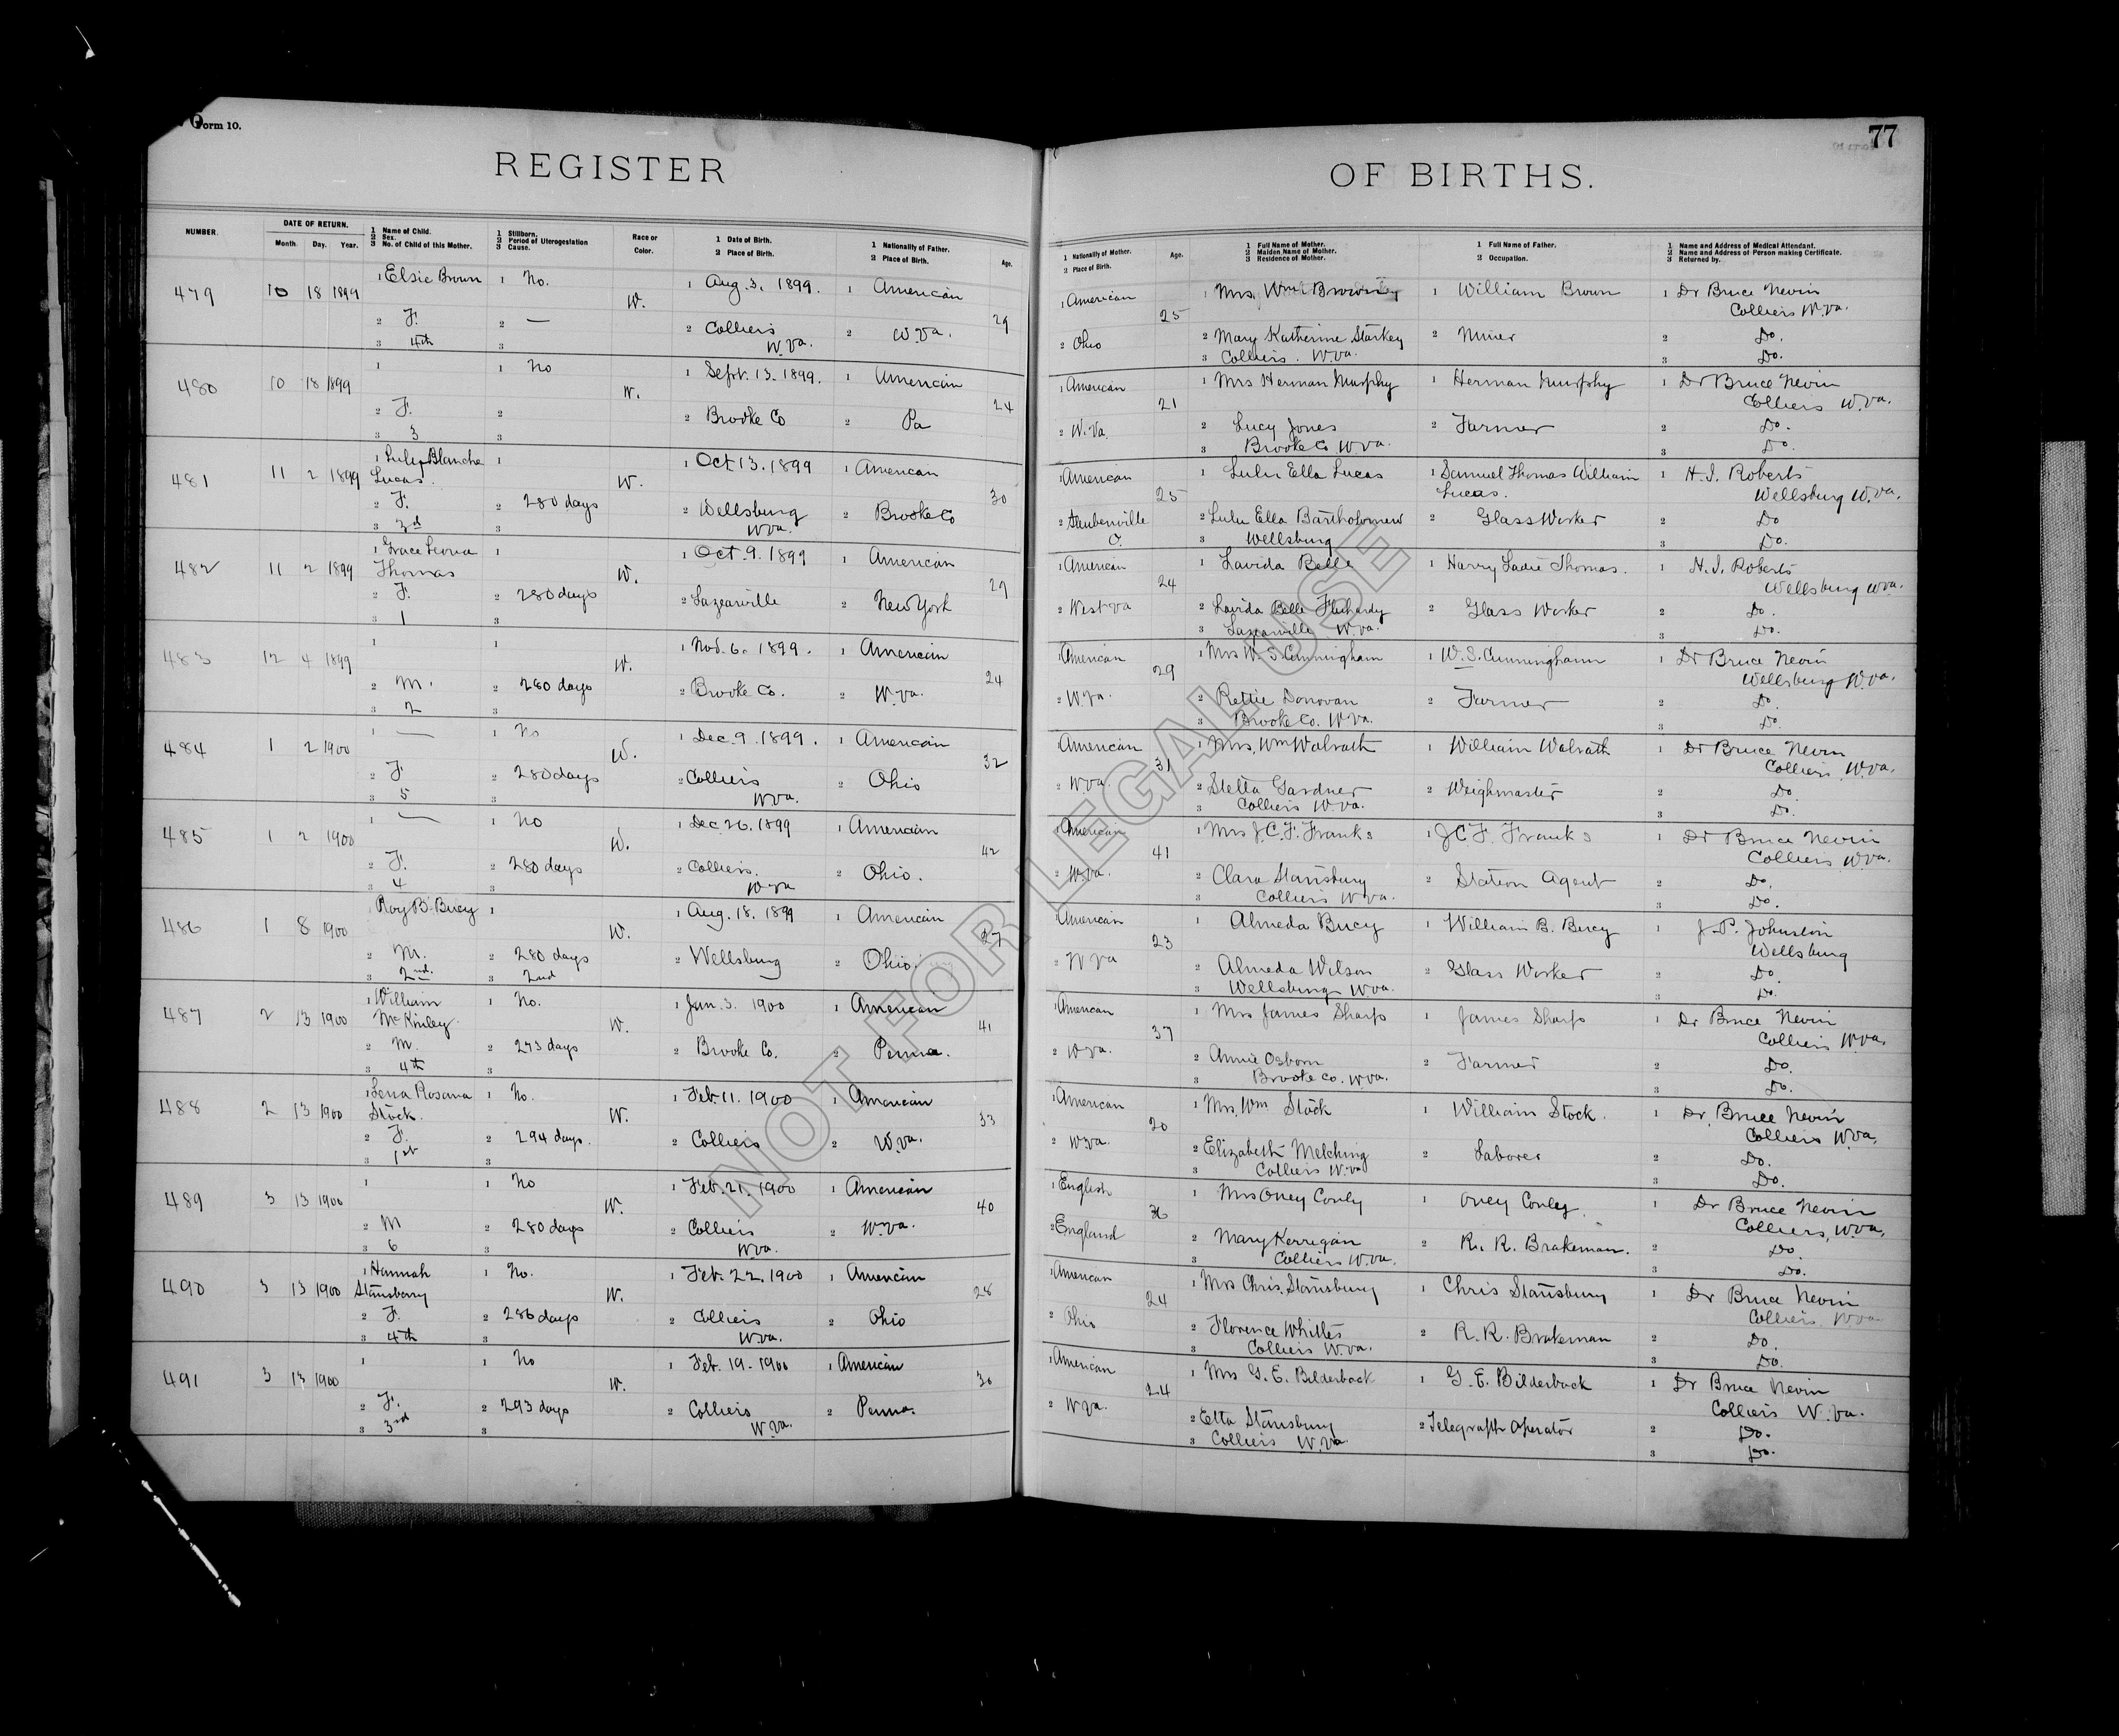 Form 10.
77
REGISTER OF BIRTHS.
NUMBER.
DATE OF RETURN.
Month. Day. Year.
1 Name of Child.
2 Sex.
3 No. of Child of this Mother.
1 Stillborn.
2 Period of Uterogestation
3 Cause.
Race or
Color.
1 Date of Birth.
2 Place of Birth.
1 Nationality of Father.
2 Place of Birth.
Age.
1 Nationality of Mother.
2 Place of Birth.
Age.
1 Full Name of Mother.
2 Maiden Name of Mother.
3 Residence of Mother.
1 Full Name of Father.
2 Occupation.
1 Name and Address of Medical Attendant.
2 Name and Address of Person making Certificate.
3 Returned by.
479 10 18 1899 1 Elsie Brown 1 No. W. 1 Aug. 3. 1899. 1 American 29 1 American 25 1 Mrs. Wm Brown 1 William Brown 1 Dr Bruce Nevin
Colliers W.Va.
2 F. 2 — 2 Colliers W.Va. 2 W.Va. 2 Ohio 2 Mary Katherine Starkey 2 Miner 2 Do.
3 4th 3 3 Colliers. W.Va. 3 Do.
480 10 18 1899 1 1 No W. 1 Sept. 13. 1899. 1 American 24 1 American 21 1 Mrs Herman Murphy 1 Herman Murphy 1 Dr Bruce Nevin
Colliers W.Va.
2 F. 2 2 Brooke Co 2 Pa 2 W.Va. 2 Lucy Jones 2 Farmer 2 Do.
3 3 3 3 Brooke Co W.Va. 3 Do.
481 11 2 1899 1 Lulu Blanche Lucas. 1 W. 1 Oct 13. 1899 1 American 30 1 American 25 1 Lulu Ella Lucas 1 Samuel Thomas William Lucas. 1 H. I. Roberts
Wellsburg W.Va.
2 F. 2 280 days 2 Wellsburg W.Va. 2 Brooke Co 2 Steubenville O. 2 Lulu Ella Bartholomew 2 Glass Worker 2 Do
3 3rd 3 3 Wellsburg 3 Do.
482 11 2 1899 1 Grace Leona Thomas 1 W. 1 Oct. 9. 1899 1 American 29 1 American 24 1 Lavida Belle 1 Harry Thomas. 1 H. I. Roberts
Wellsburg W.Va.
2 F. 2 280 days 2 Lazearville 2 New York 2 West Va 2 Lavida Belle Fluharty 2 Glass Worker 2 Do.
3 1 3 3 Lazearville W.Va. 3 Do.
483 12 4 1899 1 1 W. 1 Nov. 6. 1899. 1 American 24 1 American 29 1 Mrs W. S. Cunningham 1 W. S. Cunningham 1 Dr Bruce Nevin
Wellsburg W.Va.
2 M. 2 280 days 2 Brooke Co. 2 W.Va. 2 W.Va. 2 Rettie Donovan 2 Farmer 2 Do.
3 2 3 3 Brooke Co. W.Va. 3 Do.
484 1 2 1900 1 — 1 No W. 1 Dec. 9. 1899. 1 American 32 1 American 31 1 Mrs. Wm Walrath 1 William Walrath 1 Dr Bruce Nevin
Colliers W.Va.
2 F 2 280 days 2 Colliers W.Va. 2 Ohio 2 W.Va. 2 Stella Gardner 2 Weighmaster 2 Do.
3 5 3 3 Colliers W.Va. 3 Do.
485 1 2 1900 1 — 1 No W. 1 Dec 26. 1899 1 American 42 1 American 41 1 Mrs J. C. F. Franks 1 J C F. Franks 1 Dr Bruce Nevin
Colliers W.Va.
2 F. 2 280 days 2 Colliers. W.Va 2 Ohio. 2 W.Va. 2 Clara Stansbury 2 Station Agent 2 Do.
3 4 3 3 Colliers W.Va. 3 Do.
486 1 8 1900 Roy B. Bucy 1 W. 1 Aug. 18. 1899 1 American 27 1 American 23 1 Almeda Bucy 1 William B. Bucy 1 J. P. Johnston
Wellsburg
2 M. 2 280 days 2 Wellsburg 2 Ohio. 2 W Va 2 Almeda Wilson 2 Glass Worker 2 Do
3 2nd. 3 2nd 3 Wellsburg W.Va. 3 Do.
487 2 13 1900 1 William McKinley 1 No. W. 1 Jan. 3. 1900 1 American 41 1 American 37 1 Mrs James Sharp 1 James Sharp 1 Dr Bruce Nevin
Colliers W.Va.
2 M. 2 273 days 2 Brooke Co. 2 Penna. 2 W.Va. 2 Annie Osborn 2 Farmer 2 Do.
3 4th 3 3 Brooke Co. W.Va. 3 Do.
488 2 13 1900 1 Lena Rosana Stock. 1 No. W. 1 Feb. 11. 1900 1 American 33 1 American 20 1 Mrs. Wm Stock 1 William Stock. 1 Dr. Bruce Nevin
Colliers W.Va.
2 F. 2 294 days. 2 Colliers 2 W.Va. 2 W.Va. 2 Elizabeth Melching 2 Laborer 2 Do.
3 1st 3 3 Colliers W.Va 3 Do.
489 3 13 1900 1 1 No W. 1 Feb. 21. 1900 1 American 40 1 English 36 1 Mrs Oney Conly 1 Oney Conley. 1 Dr Bruce Nevin
Colliers, W.Va.
2 M 2 280 days 2 Colliers W.Va. 2 W.Va. 2 England 2 Mary Kerrigan 2 R. R. Brakeman. 2 Do.
3 6 3 3 Colliers W.Va. 3 Do.
490 3 13 1900 1 Hannah Stansberry 1 No. W. 1 Feb. 22. 1900 1 American 28 1 American 24 1 Mrs Chris. Stansbury 1 Chris Stansbury 1 Dr Bruce Nevin
Colliers W.Va
2 F. 2 286 days 2 Colliers W.Va. 2 Ohio 2 Ohio 2 Florence Whittes 2 R. R. Brakeman 2 Do.
3 4th 3 3 Colliers W.Va. 3 Do.
491 3 13 1900 1 1 No W. 1 Feb. 19. 1900 1 American 30 1 American 24 1 Mrs G. E. Bilderback 1 G. E. Bilderback 1 Dr Bruce Nevin
Colliers W.Va.
2 F. 2 293 days 2 Colliers W.Va. 2 Penna. 2 W.Va. 2 Etta Stansbury 2 Telegraph Operator 2 Do.
3 3rd 3 3 Colliers W.Va 3 Do.
NOT FOR LEGAL USE